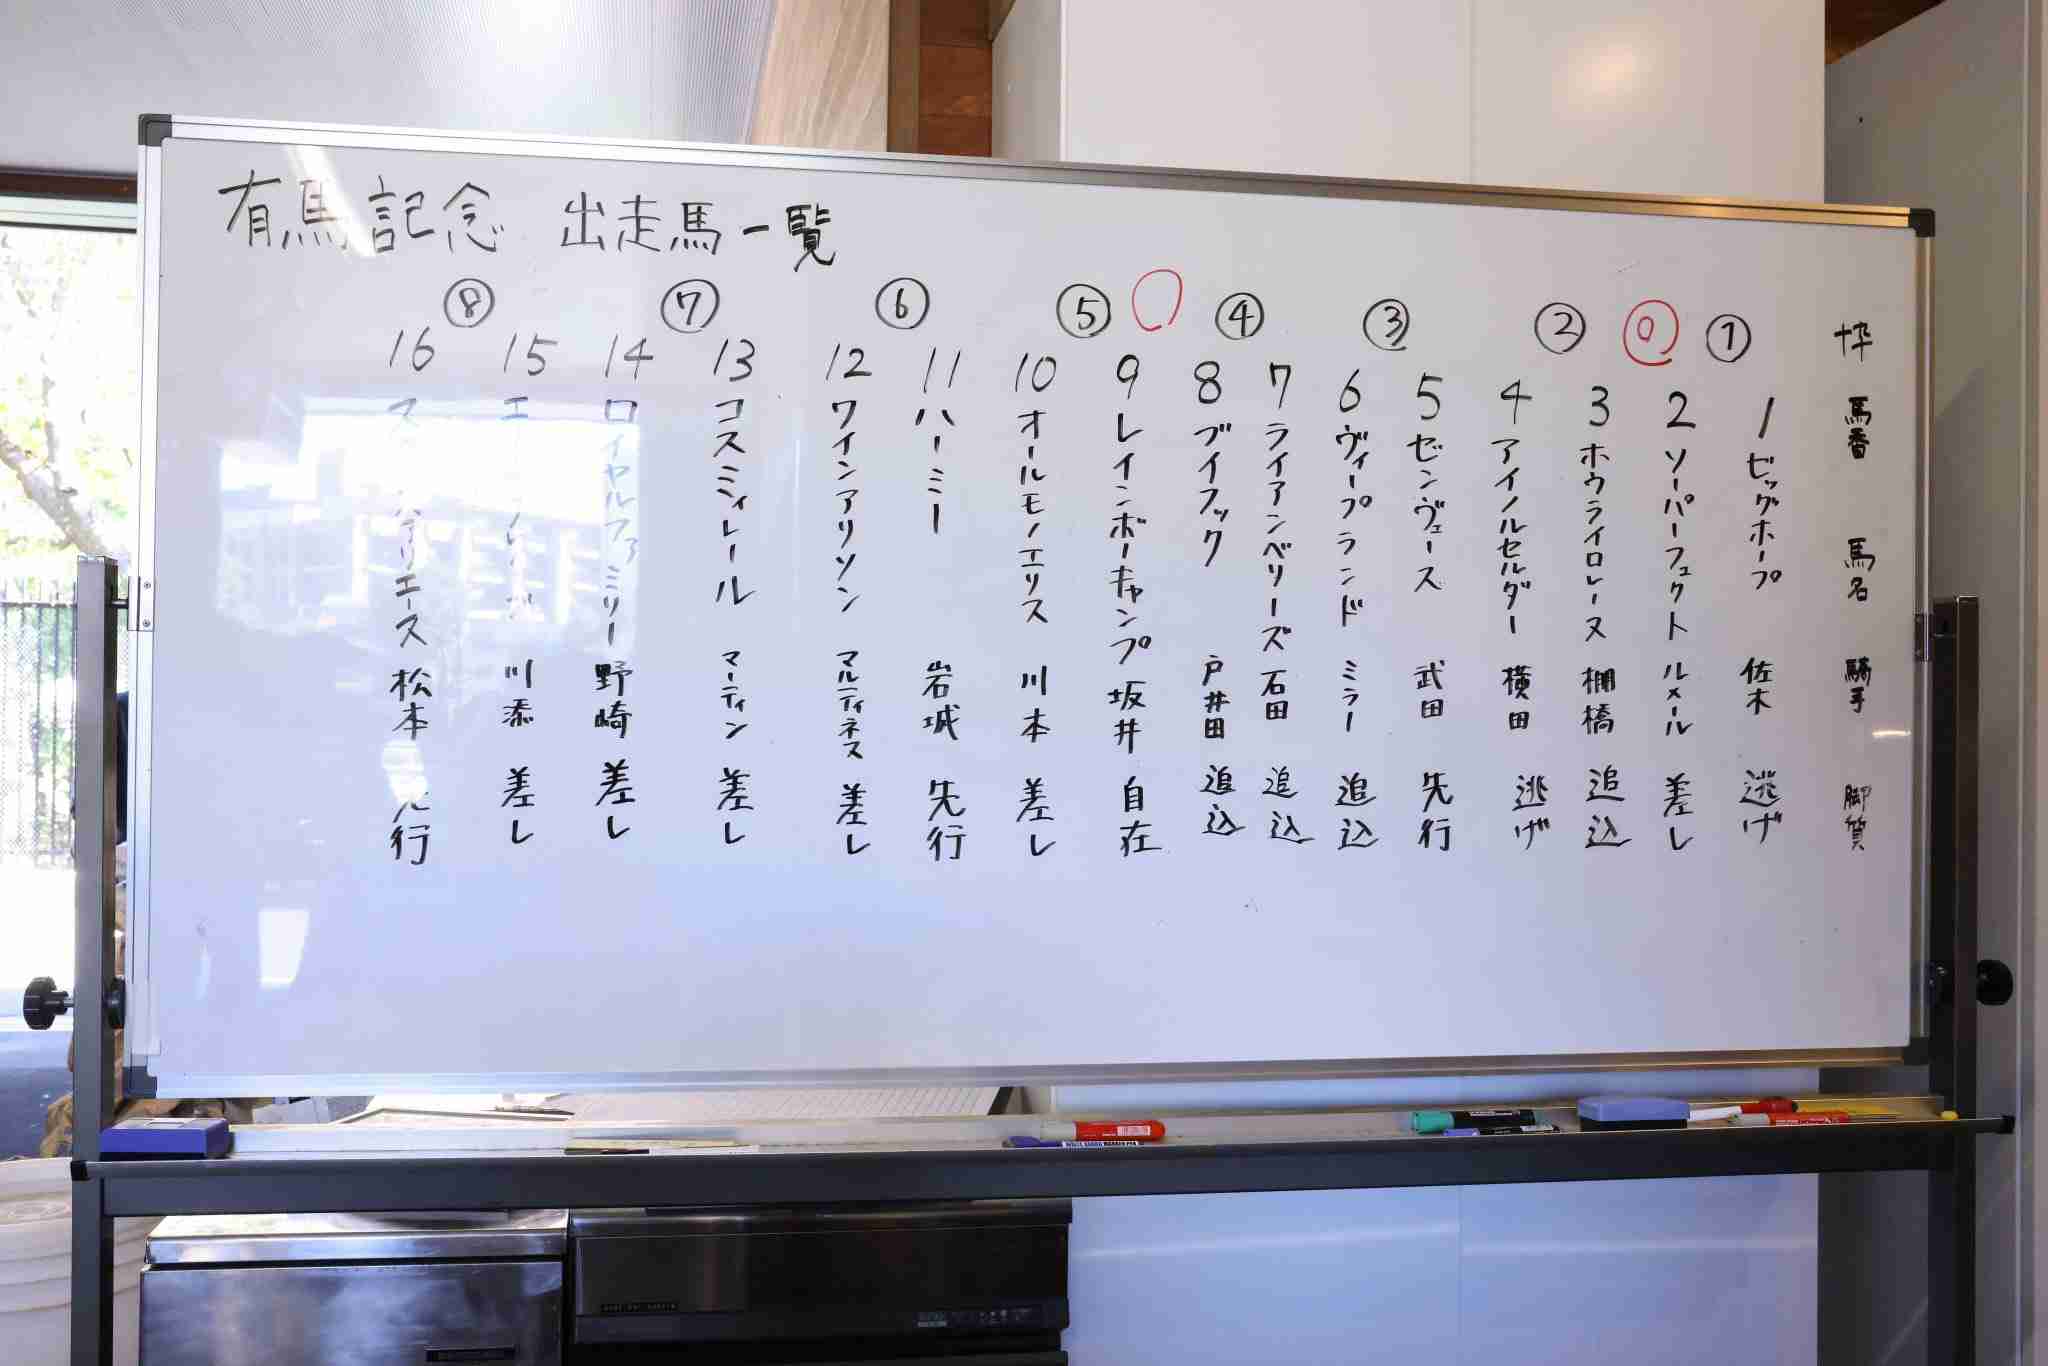 有馬記念 出走馬一覧
枠 馬番 馬名 騎手 脚質
①
1 ビッグホープ 佐木 逃げ
◎
2 ソーパーフェクト ルメール 差し
3 ホウライロレーヌ 棚橋 追込
②
4 アイノルセルダー 横田 逃げ
5 ゼンヴェース 武田 先行
③
6 ヴィープランド ミラー 追込
7 ライアンベリーズ 石田 追込
④
8 ブイフック 戸井田 追込
○
9 レインボーキャンプ 坂井 自在
⑤
10 オールモノエリス 川本 差し
11 ハーミー 岩城 先行
⑥
12 ワインアリソン マルティネス 差し
13 コスミィレール マーティン 差し
⑦
14 ロイヤルファミリー 野崎 差し
15 川添 差し
⑧
16 松本 先行